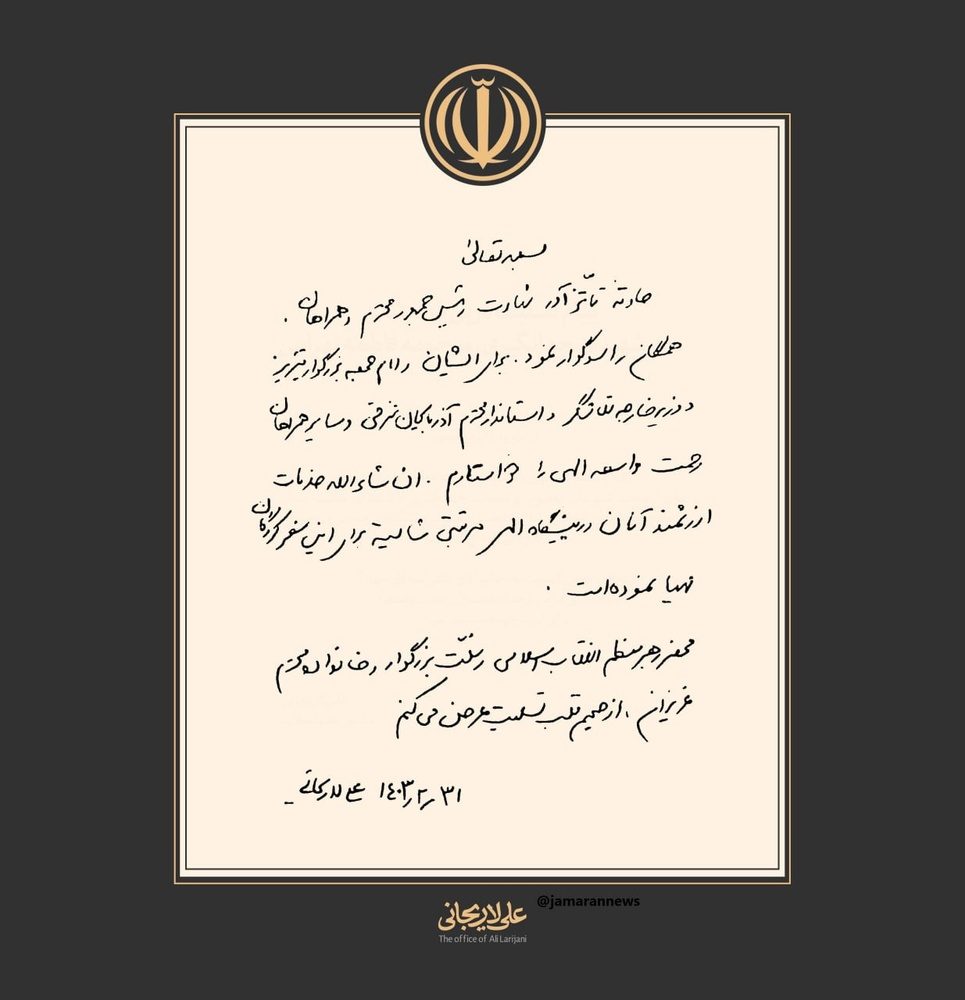 بسمه تعالی
حادثهٔ تأثّر آور شهادت رئیس جمهور محترم و همراهان،
همگان را سوگوار نمود. برای ایشان و امام جمعه بزرگوار تبریز
و وزیر خارجه تلاشگر و استاندار محترم آذربایجان شرقی و سایر همراهان
رحمت واسعه الهی را خواستارم. ان شاءالله خدمات
ارزشمند آنان در پیشگاه الهی مرتبتی شایسته برای این سفر کرده‌گان
مهیا نموده است.
محضر رهبر معظم انقلاب اسلامی و ملّت بزرگوار و خانواده محترم
عزیزان، از صمیم قلب تسلیت عرض می کنم
۱۴۰۳/۲/۳۱ علی لاریجانی
@jamarannews
علی لاریجانی
The office of Ali Larijani